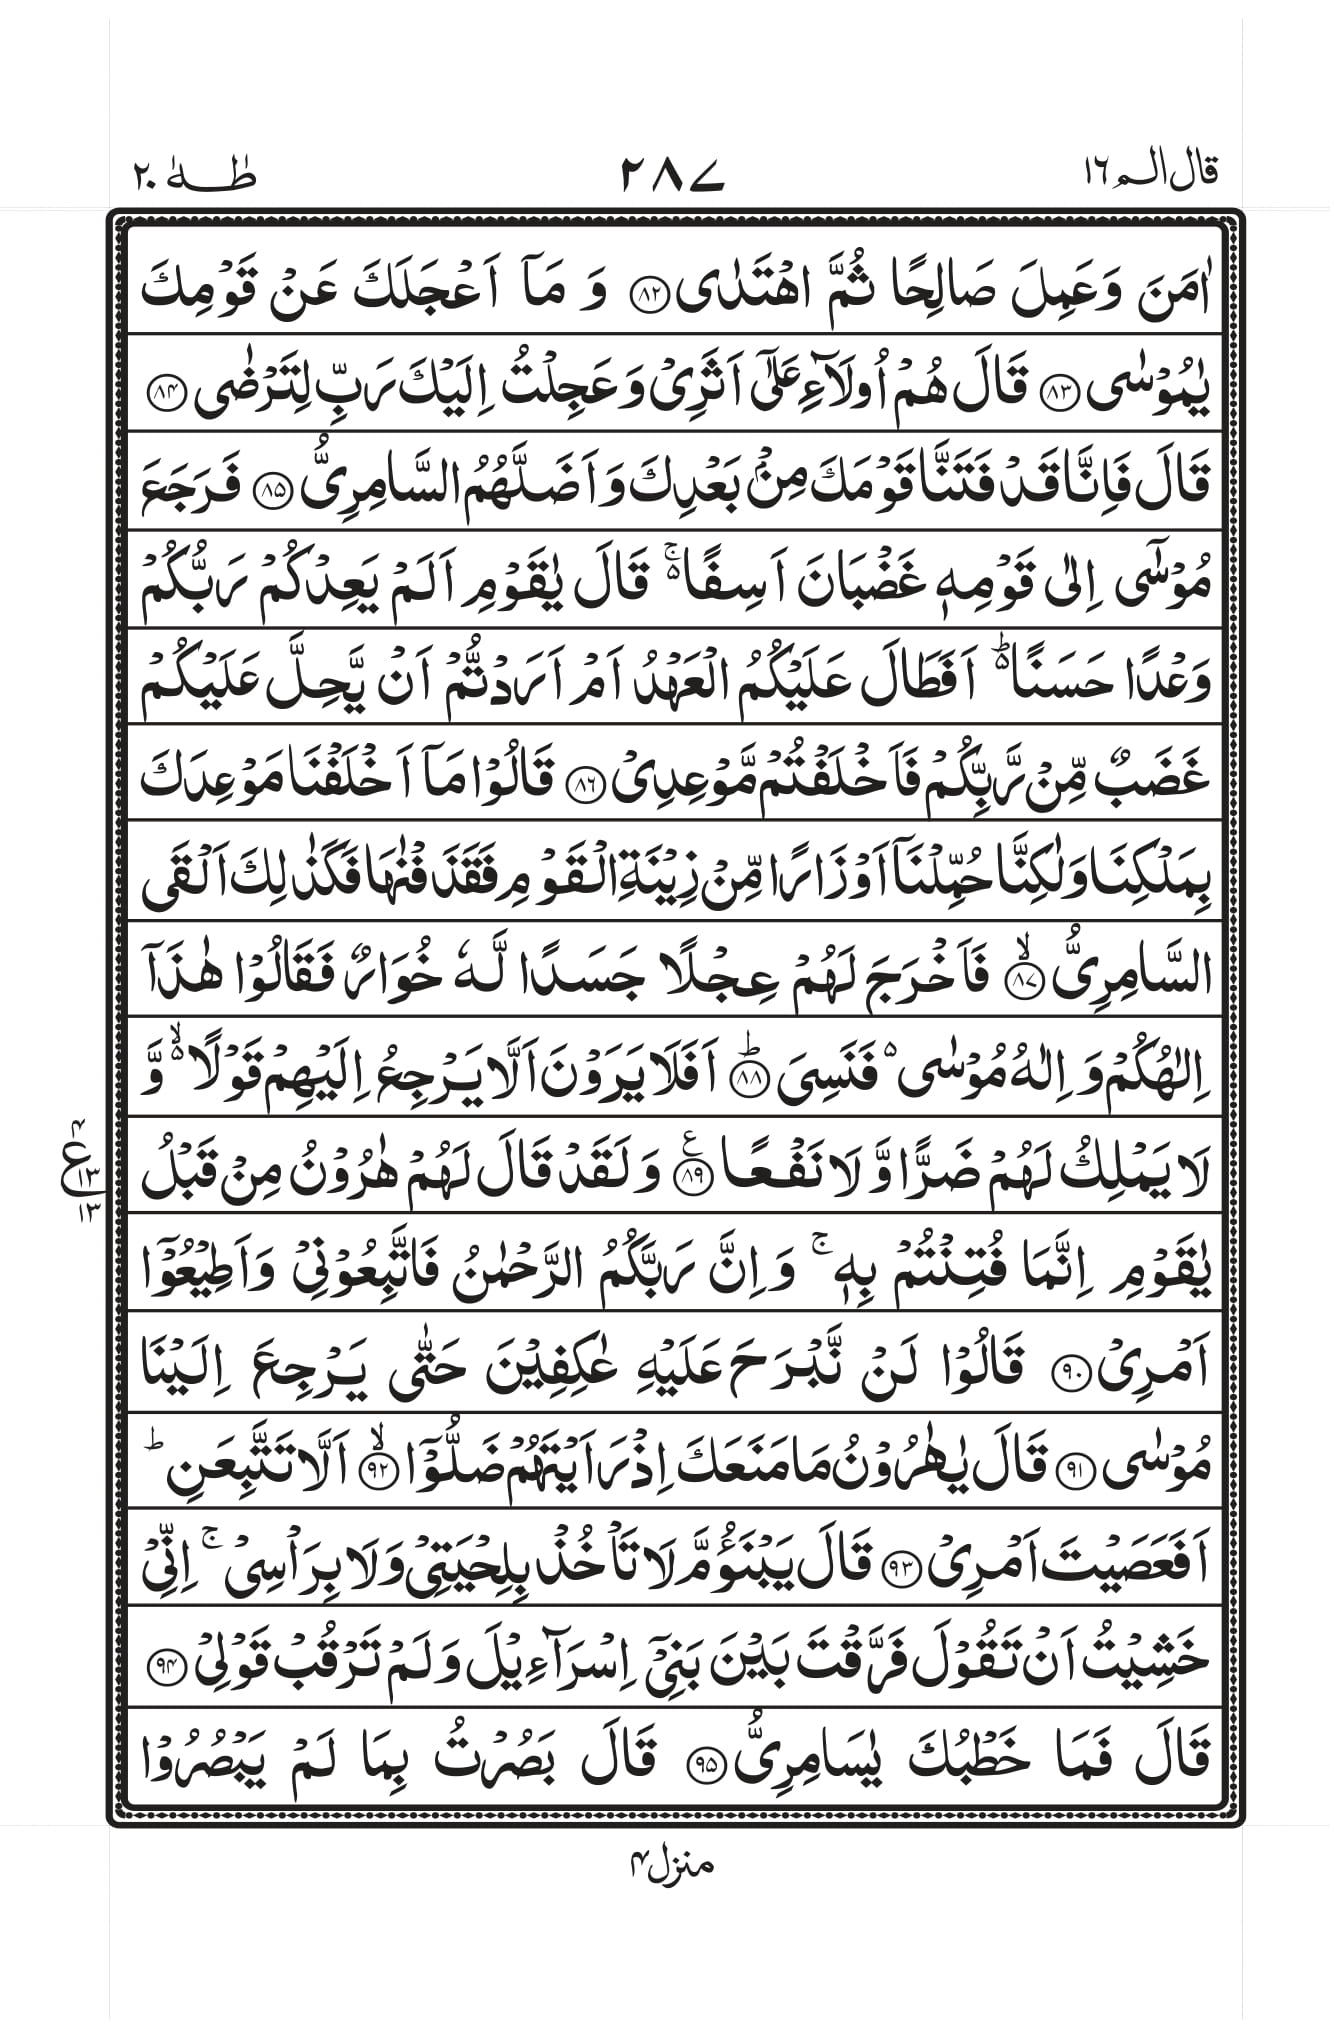 قال الم ١٦
٢٨٧
طٰہٰ ٢٠
اٰمَنَ وَعَمِلَ صَالِحًا ثُمَّ اهْتَدٰى ﴿٨٢﴾ وَ مَاۤ اَعْجَلَكَ عَنْ قَوْمِكَ
يٰمُوْسٰى ﴿٨٣﴾ قَالَ هُمْ اُولَآءِ عَلٰٓى اَثَرِىْ وَ عَجِلْتُ اِلَيْكَ رَبِّ لِتَرْضٰى ﴿٨٤﴾
قَالَ فَاِنَّا قَدْ فَتَنَّا قَوْمَكَ مِنْۢ بَعْدِكَ وَ اَضَلَّهُمُ السَّامِرِىُّ ﴿٨٥﴾ فَرَجَعَ
مُوْسٰٓى اِلٰى قَوْمِهٖ غَضْبَانَ اَسِفًا ۬ۚ قَالَ يٰقَوْمِ اَلَمْ يَعِدْكُمْ رَبُّكُمْ
وَعْدًا حَسَنًا ۬ؕ اَفَطَالَ عَلَيْكُمُ الْعَهْدُ اَمْ اَرَدْتُّمْ اَنْ يَّحِلَّ عَلَيْكُمْ
غَضَبٌ مِّنْ رَّبِّكُمْ فَاَخْلَفْتُمْ مَّوْعِدِىْ ﴿٨٦﴾ قَالُوْا مَاۤ اَخْلَفْنَا مَوْعِدَكَ
بِمَلْكِنَا وَلٰكِنَّا حُمِّلْنَاۤ اَوْزَارًا مِّنْ زِيْنَةِ الْقَوْمِ فَقَذَفْنٰهَا فَكَذٰلِكَ اَلْقَى
السَّامِرِىُّ ۙ﴿٨٧﴾ فَاَخْرَجَ لَهُمْ عِجْلًا جَسَدًا لَّهٗ خُوَارٌ فَقَالُوْا هٰذَاۤ
اِلٰهُكُمْ وَ اِلٰهُ مُوْسٰى ۬ فَنَسِىَ ؕ﴿٨٨﴾ اَفَلَا يَرَوْنَ اَلَّا يَرْجِعُ اِلَيْهِمْ قَوْلًا ۬ۙ وَّ
لَا يَمْلِكُ لَهُمْ ضَرًّا وَّ لَا نَفْعًا ﴿٨٩﴾ ع وَ لَقَدْ قَالَ لَهُمْ هٰرُوْنُ مِنْ قَبْلُ
٤ ع ١٣ ١٣
يٰقَوْمِ اِنَّمَا فُتِنْتُمْ بِهٖ ۚ وَ اِنَّ رَبَّكُمُ الرَّحْمٰنُ فَاتَّبِعُوْنِىْ وَ اَطِيْعُوْۤا
اَمْرِىْ ﴿٩٠﴾ قَالُوْا لَنْ نَّبْرَحَ عَلَيْهِ عٰكِفِيْنَ حَتّٰى يَرْجِعَ اِلَيْنَا
مُوْسٰى ﴿٩١﴾ قَالَ يٰهٰرُوْنُ مَا مَنَعَكَ اِذْ رَاَيْتَهُمْ ضَلُّوْۤا ۙ﴿٩٢﴾ اَلَّا تَتَّبِعَنِ ؕ
اَفَعَصَيْتَ اَمْرِىْ ﴿٩٣﴾ قَالَ يَبْنَؤُمَّ لَا تَاْخُذْ بِلِحْيَتِىْ وَلَا بِرَاْسِىْ ۚ اِنِّىْ
خَشِيْتُ اَنْ تَقُوْلَ فَرَّقْتَ بَيْنَ بَنِىْۤ اِسْرَآءِيْلَ وَ لَمْ تَرْقُبْ قَوْلِىْ ﴿٩٤﴾
قَالَ فَمَا خَطْبُكَ يٰسَامِرِىُّ ﴿٩٥﴾ قَالَ بَصُرْتُ بِمَا لَمْ يَبْصُرُوْا
منزل ٤